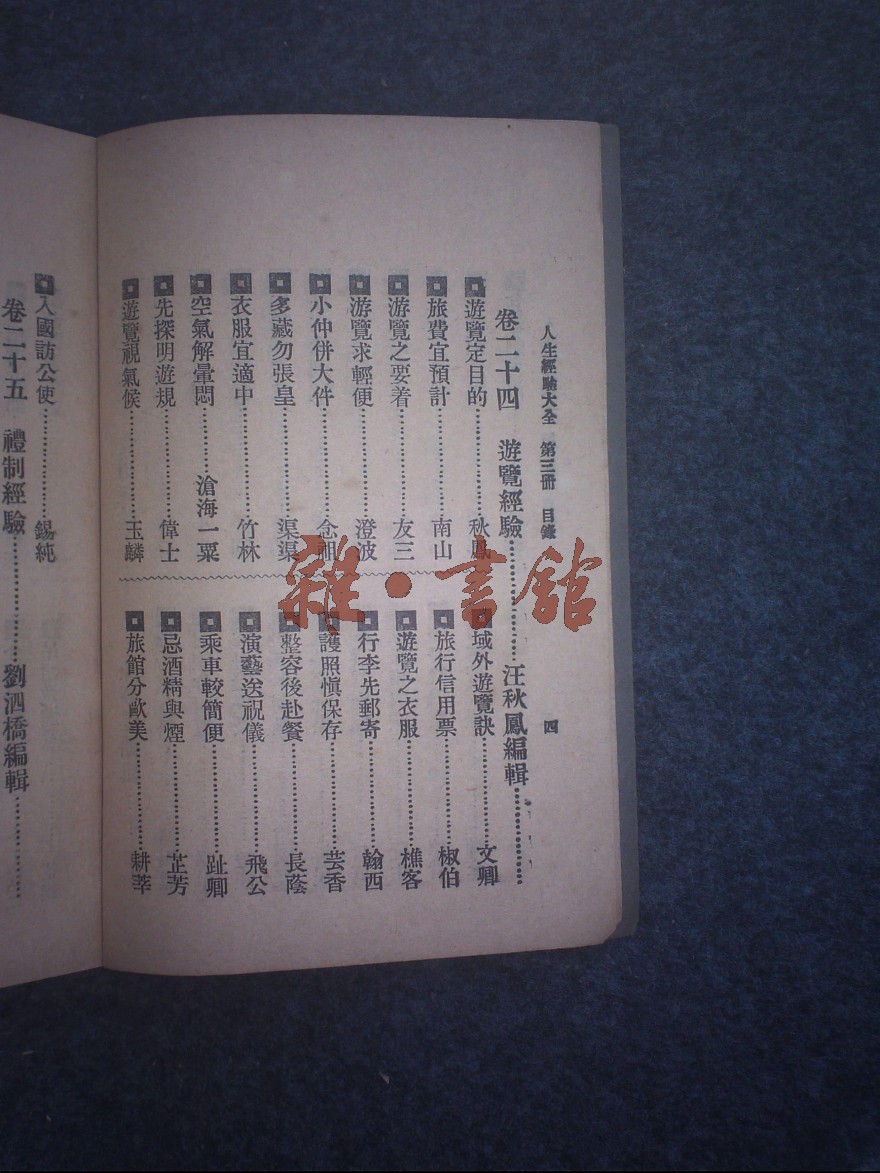 人生經驗大全　第三冊　目錄　四
卷二十四　遊覽經驗…………汪秋鳳編輯…………
遊覽定目的…………秋鳳
旅費宜預計…………南山
遊覽之要着…………友三
游覽求輕便…………澄波
小仲併大件…………念祖
多藏勿張皇…………渠渠
衣服宜適中…………竹林
空氣解暈悶…………滄海一粟
先探明遊規…………偉士
遊覽視氣候…………玉麟
域外遊覽訣…………文卿
旅行信用票…………椒伯
遊覽之衣服…………樵客
行李先郵寄…………翰西
護照愼保存…………芸香
整容後赴餐…………長蔭
演藝送祝儀…………飛公
乘車較簡便…………趾卿
忌酒精與煙…………芷芳
旅館分歐美…………耕莘
入國訪公使…………錫純
卷二十五　禮制經驗…………劉泗橋編輯…………
雜·書館